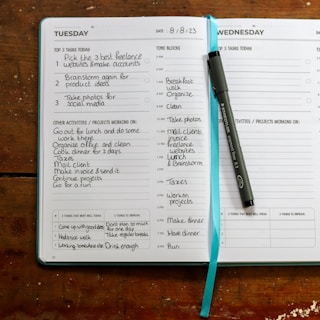 TUESDAY
DATE 8/8/23
TOP 3 TASKS TODAY
1 Pick the 3 best freelance
websites & make accounts
2 Brainstorm again for
product ideas
3 Take photos for
social media
OTHER ACTIVITIES / PROJECTS WORKING ON:
Go out for lunch and do some
work there
Organise office and clean
Cook dinner for 2 days
Taxes
Mail client
Make invoice & send it
Continue projects
Go for a run
3 THINGS THAT WENT WELL TODAY
3 THINGS TO IMPROVE
Come up with good ideas
Had a nice walk
Working somewhere else
Don't plan too much
for one day
Take regular breaks
Drink enough
TIME BLOCKS
Breakfast
Walk
Organise
Clean
Take photos
Mail client,
invoice
freelance
websites
Lunch
& Brainstorm
Taxes
Work on
projects
Make dinner
Have dinner
Run
WEDNESDAY
TOP 3 TASKS TODAY
1
2
3
OTHER ACTIVITIES / PROJECTS WORKING ON:
3 THINGS THAT WENT WELL TODAY
3 THINGS TO IMPROVE